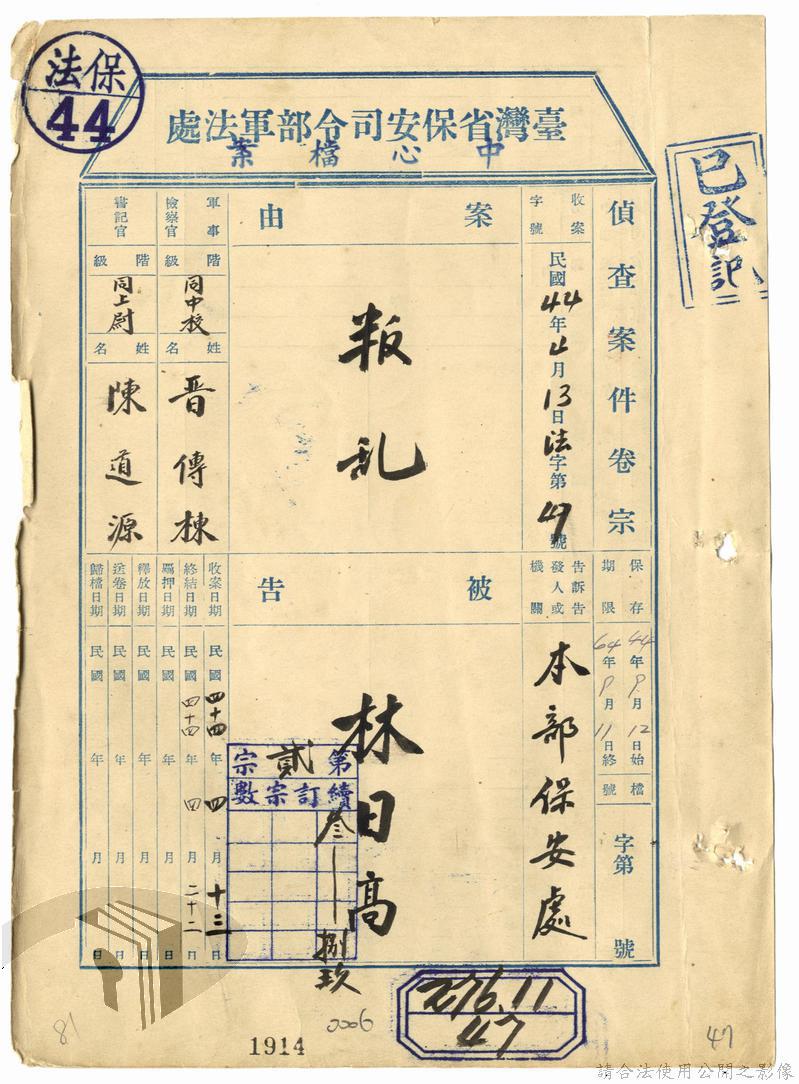 法保
44
處法軍部令司安保省灣臺
案檔心中
已登記
偵查案件卷宗
保存期限
44年9月12日始
64年9月11日終
檔號
字第 號
收案字號
民國44年4月13日法字第47號
告訴告發人或機關
本部保安處
由案
叛乱
告被
林日高
軍事檢察官
階級
同中校
姓名
晋傳棟
書記官
階級
同上尉
姓名
陳道源
收案日期 民國四十四年四月十三日
終結日期 民國四十四年四月二十二日
羈押日期 民國 年 月 日
釋放日期 民國 年 月 日
送卷日期 民國 年 月 日
歸檔日期 民國 年 月 日
宗貳第
數宗訂續
叁—捌
玖
276.11
47
1914
0006
81
47
請合法使用公開之影像